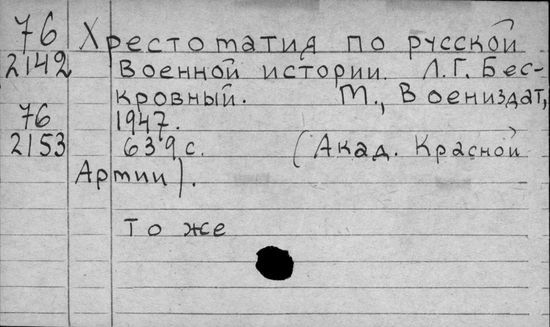 76 Хрестоматия по русской
2142 военной истории. Л.Г. Бес-
кровный. М., Воениздат,
76 1947.
2153 639 с. (Акад. Красной
Армии).
То же